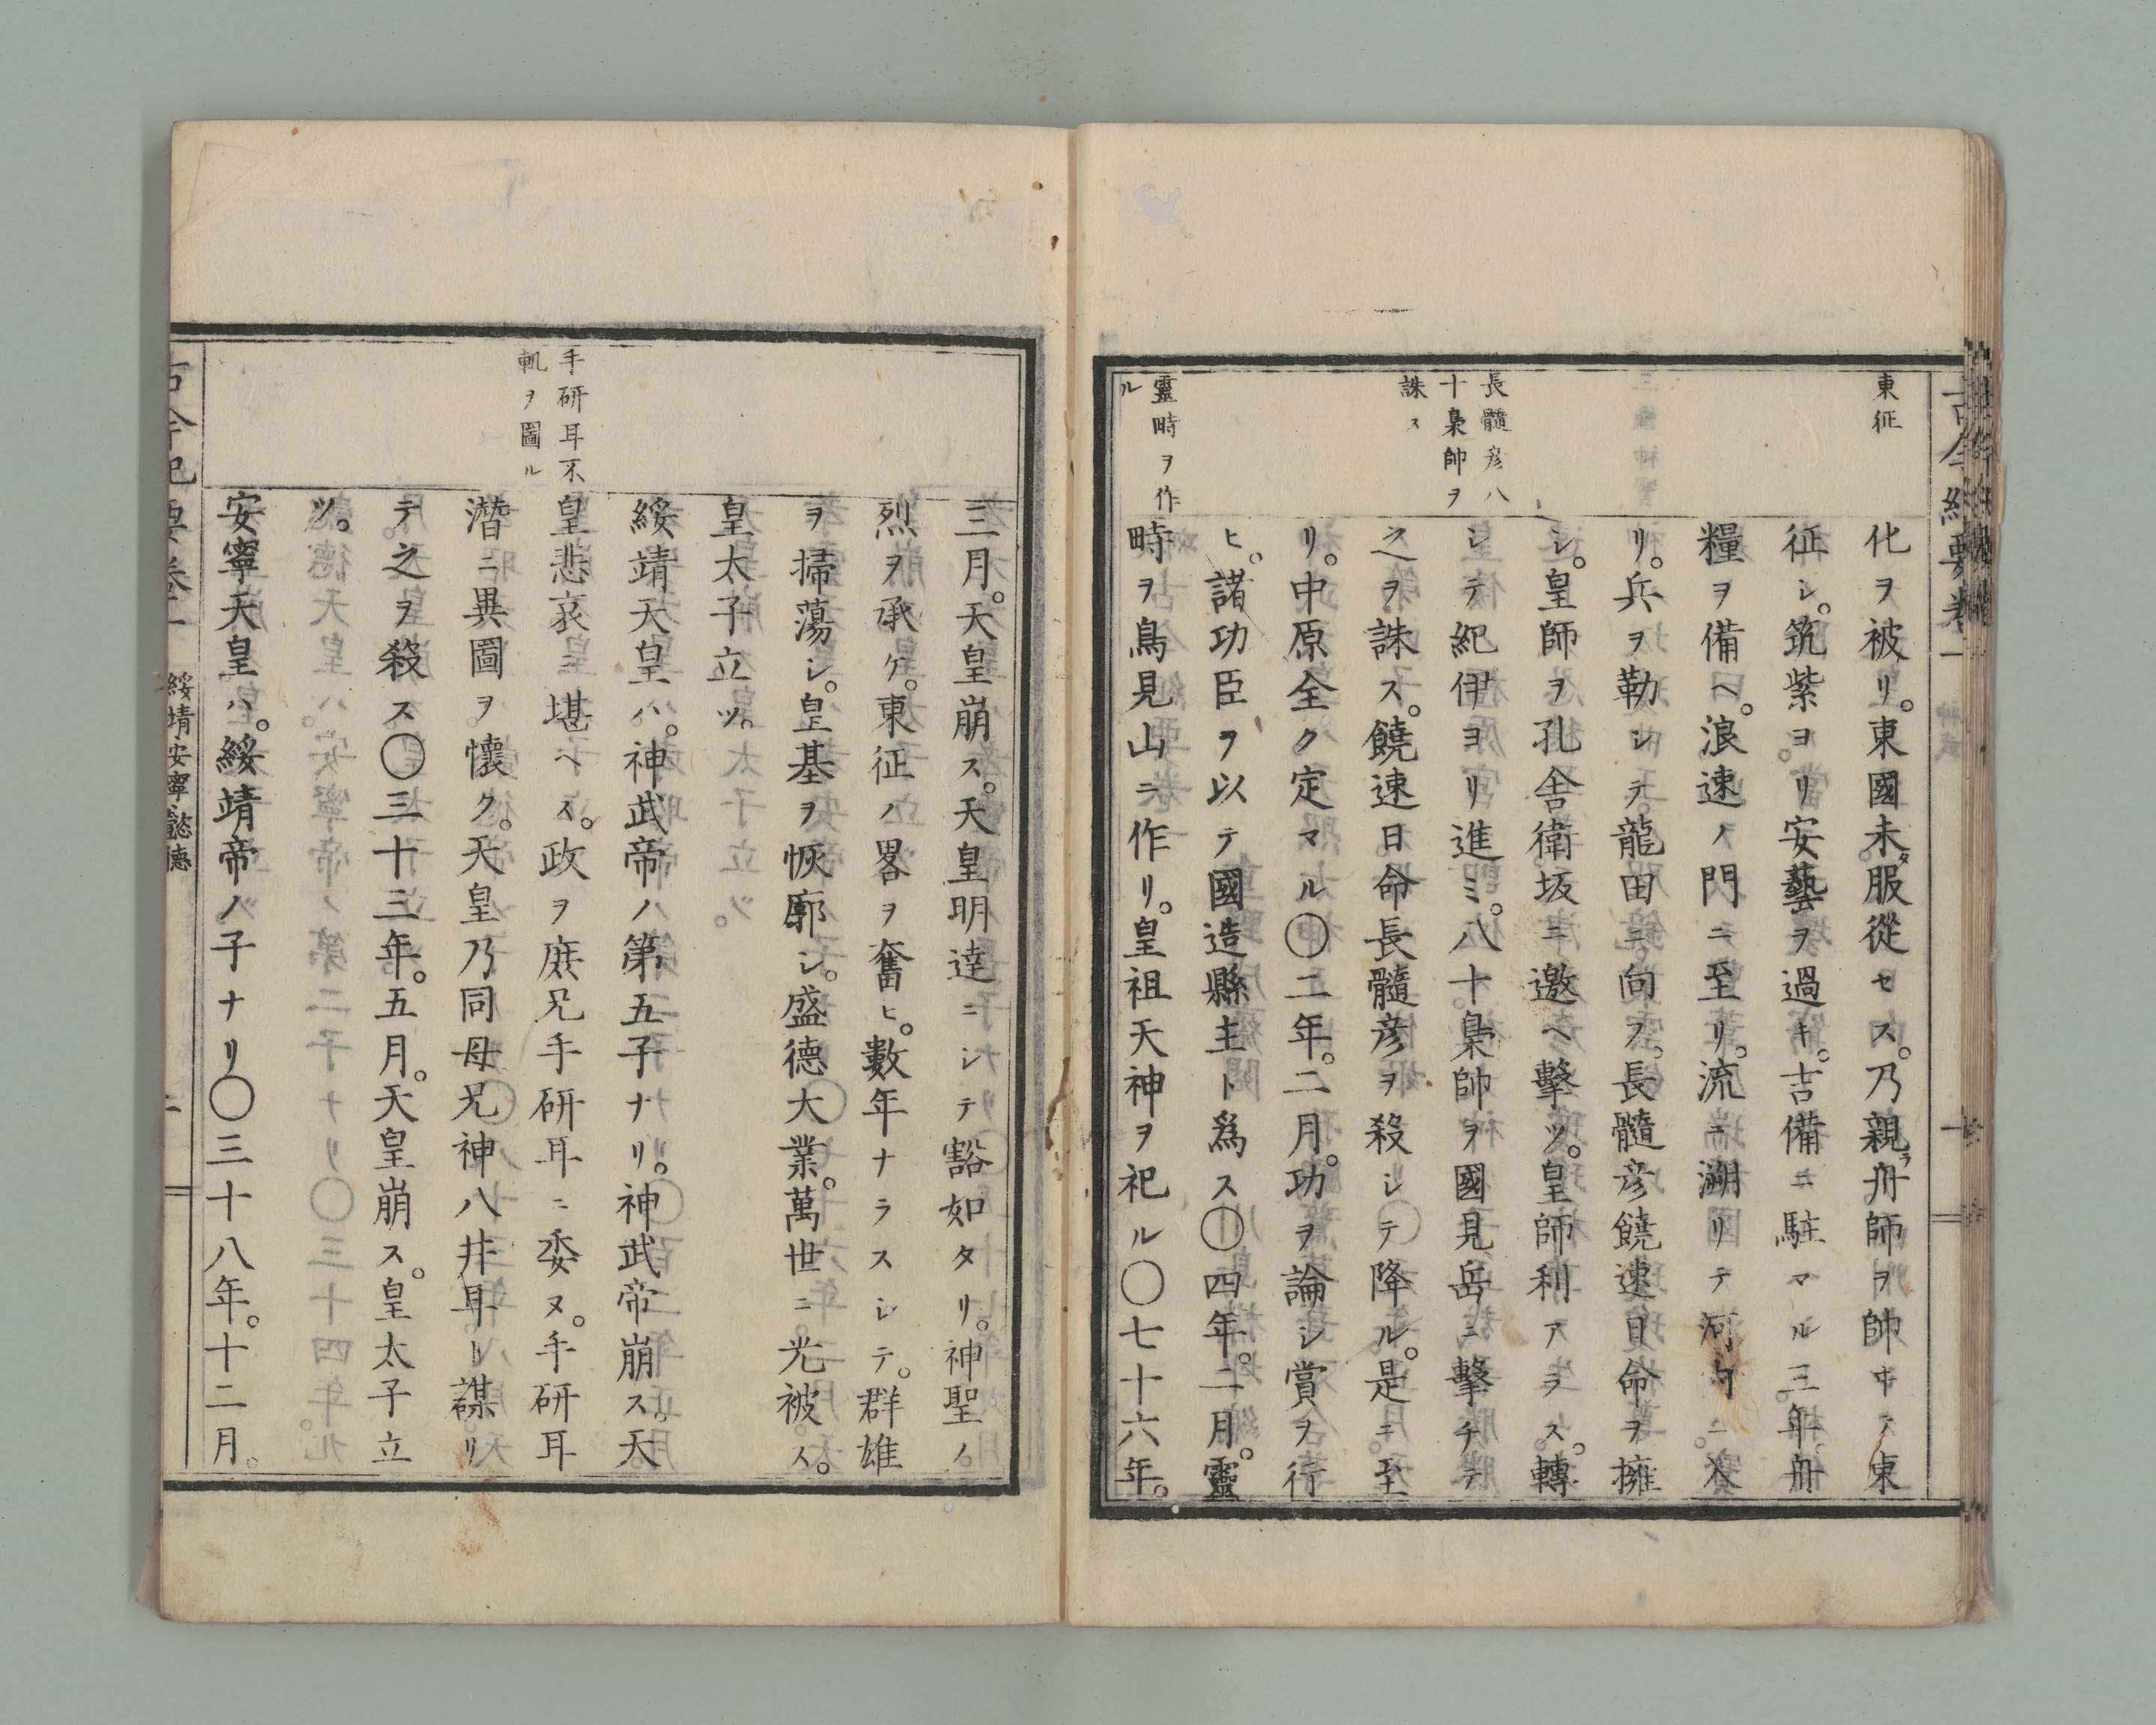 古今紀要卷一
東征
化ヲ被リ。東國未タ服從セス。乃親ラ舟師ヲ帥ヰテ東
征シ。筑紫ヨリ安藝ヲ過キ。吉備ニ駐マル三年。舟
糧ヲ備ヘ。浪速ノ門ニ至リ。流ニ溯リテ河内ニ入
リ。兵ヲ勒シテ龍田ニ向フ。長髓彦饒速日命ヲ擁
シ。皇師ヲ孔舍衛坂ニ邀ヘ擊ツ。皇師利アラス。轉
長髓彦八
十梟帥ヲ
誅ス
シテ紀伊ヨリ進ミ。八十梟帥ヲ國見岳ニ擊チテ
之ヲ誅ス。饒速日命長髓彦ヲ殺シテ降ル。是ニ至
リ。中原全ク定マル〇二年。二月。功ヲ論シ賞ヲ行
ヒ。諸功臣ヲ以テ國造縣主ト爲ス〇四年。二月。靈
靈畤ヲ作
ル
畤ヲ鳥見山ニ作リ。皇祖天神ヲ祀ル〇七十六年。
三月。天皇崩ス。天皇明達ニシテ豁如タリ。神聖ノ
烈ヲ承ケ。東征ノ畧ヲ奮ヒ。數年ナラスシテ。群雄
ヲ掃蕩シ。皇基ヲ恢廓シ。盛德大業。萬世ニ光被ス。
皇太子立ツ。
綏靖天皇ハ。神武帝ノ第五子ナリ。神武帝崩ス。天
手研耳不
軌ヲ圖ル
皇悲哀ニ堪ヘス。政ヲ庶兄手研耳ニ委ヌ。手研耳
潛ニ異圖ヲ懷ク。天皇乃同母兄神八井耳ト謀リ
テ之ヲ殺ス〇三十三年。五月。天皇崩ス。皇太子立
ツ。
安寧天皇ハ。綏靖帝ノ子ナリ〇三十八年。十二月。
古今紀要卷一 綏靖 安寧 懿德 二